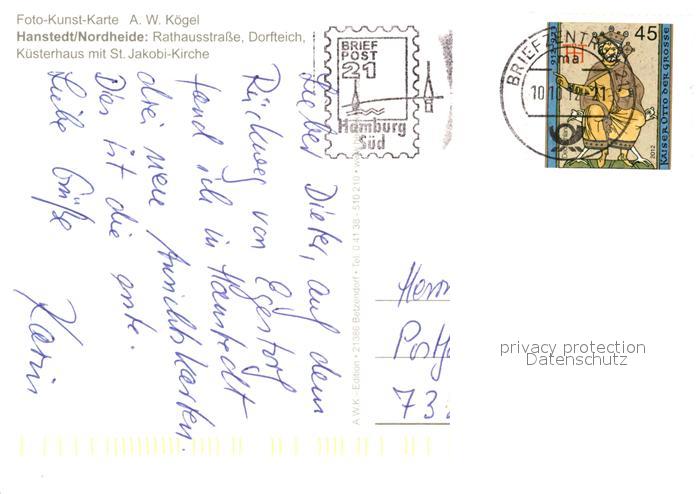 Foto-Kunst-Karte A. W. Kögel
Hanstedt/Nordheide: Rathausstraße, Dorfteich,
Küsterhaus mit St. Jakobi-Kirche
BRIEF
POST
21
Hamburg
Süd
BRIEFZENTRUM
10.10.12-21
45
KAISER OTTO DER GROSSE
2012
Lieber Dieter, auf dem
Rückweg von Egestorf
fand ich in Hanstedt
drei neue Ansichtskarten.
Das ist die erste.
Liebe Grüße
Karin
A.W.K - Edition • 21386 Betzendorf • Tel. 0 41 38 - 510 210 •
Herrn
Postf
73
privacy protection
Datenschutz